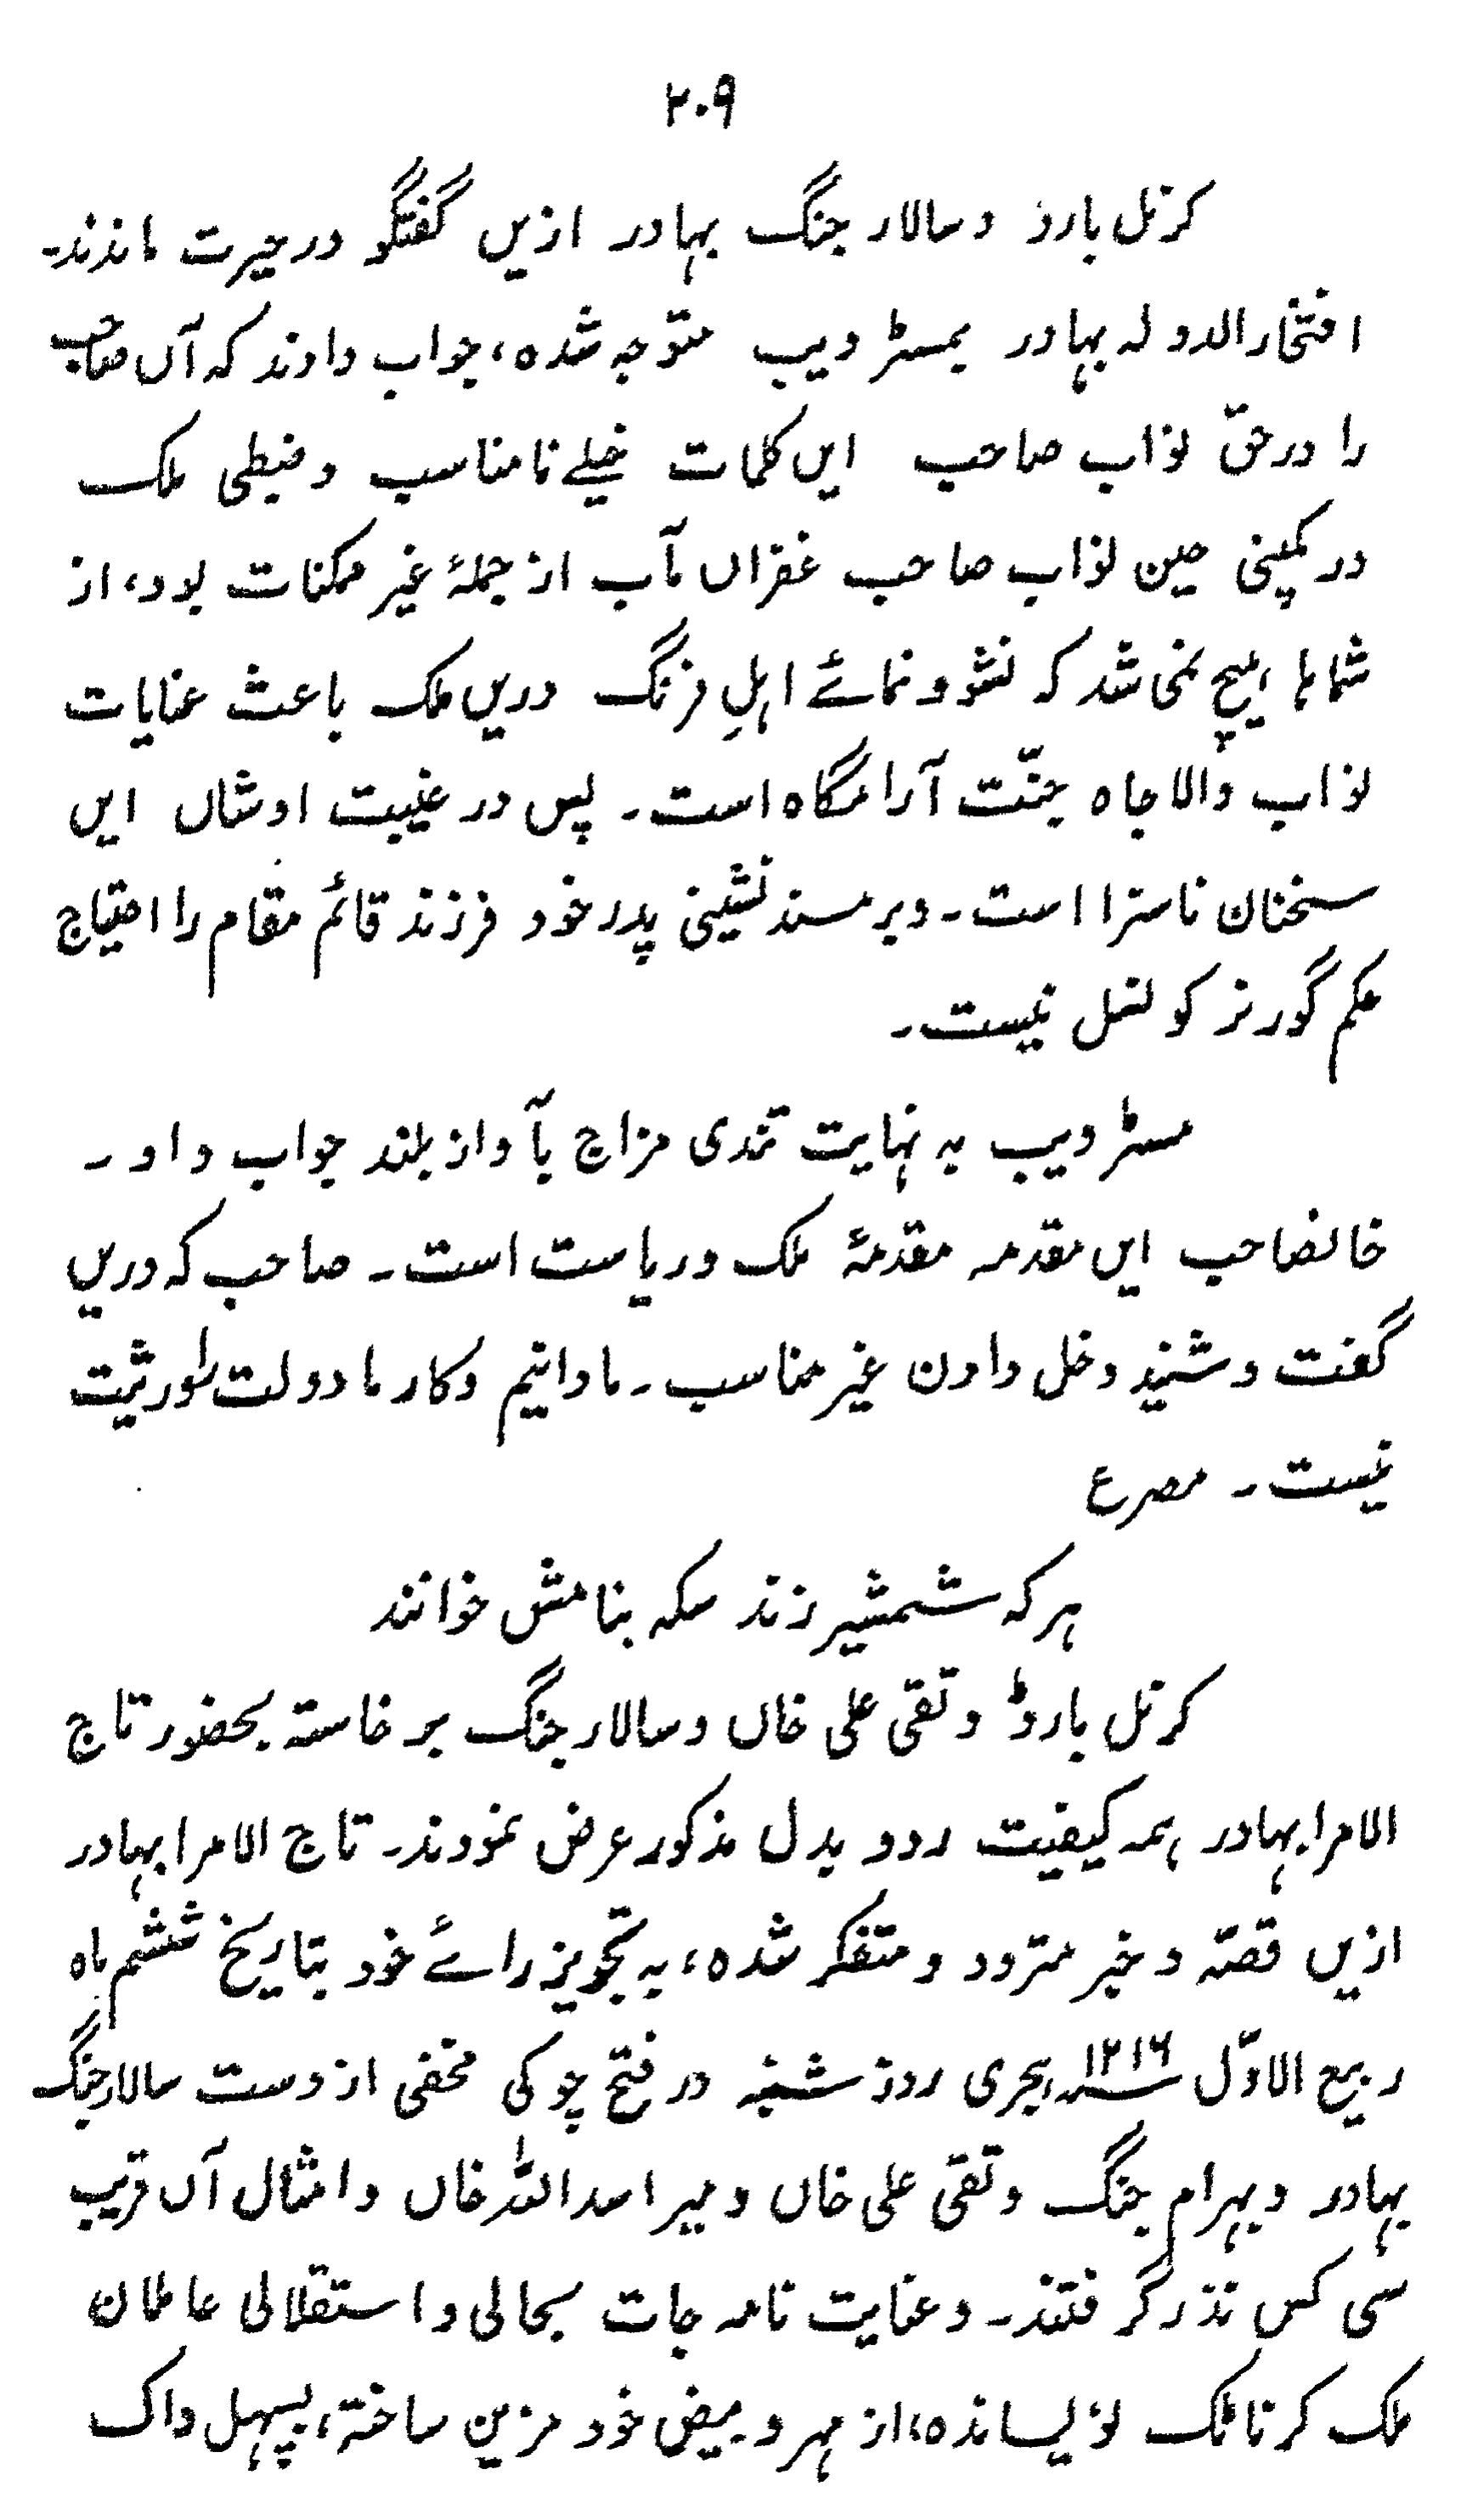 ۲۰۹
کرنل بارڈ و سالار جنگ بہادر ازیں گفتگو در حیرت ماندند۔
افتخار الدولہ بہادر بمسٹر ویب متوجہ شدہ، جواب دادند کہ آں صاحب
را در حقّ نواب صاحب ایں کلمات خیلے نامناسب و ضبطی ملک
در کمپنی حین نواب صاحب غفراں مآب از جملۂ غیر ممکنات بود، از
شماہا ہیچ نمی شد کہ نشو و نمائے اہلِ فرنگ دریں ملک باعث عنایات
نواب والا جاہ جنّت آرامگاہ است۔ پس در غیبت اوشاں ایں
سخنان ناسزا است۔ و بر مسند نشینی پدر خود فرزند قائم مقام را احتیاج
حکم گورنر کونسل نیست۔
مسٹر ویب بہ نہایت تندی مزاج بآواز بلند جواب داد۔
خانصاحب ایں مقدمہ مقدمۂ ملک و ریاست است۔ صاحب کہ دریں
گفت و شنید دخل دادن غیر مناسب۔ ما دانیم و کار ما دولت طور ثیت
نیست۔ مصرع
ہر کہ شمشیر زند سکہ بنامش خوانند
کرنل بارڈ و تقی علی خاں و سالار جنگ برخاستہ بحضور تاج
الامرا بہادر ہمہ کیفیت رد و بدل مذکور عرض نمودند۔ تاج الامرا بہادر
ازیں قصّہ و خبر متردد و متفکر شدہ، بہ تجویز رائے خود بتاریخ ششم ماہ
ربیع الاوّل ۱۲۱۶ سنہ ہجری روز شنبہ در فتح چوکی مخفی از دست سالار جنگ
بہادر و بہرام جنگ و تقی علی خاں و میر اسد اللہ خاں و امثال آں قریب
سی کس نذر گرفتند۔ و عنایت نامہ جات بحالی و استقلالی عاملان
ملک کرناٹک نویسانده، از مہر و بیض خود مزین ساختہ، بسہل ڈاک